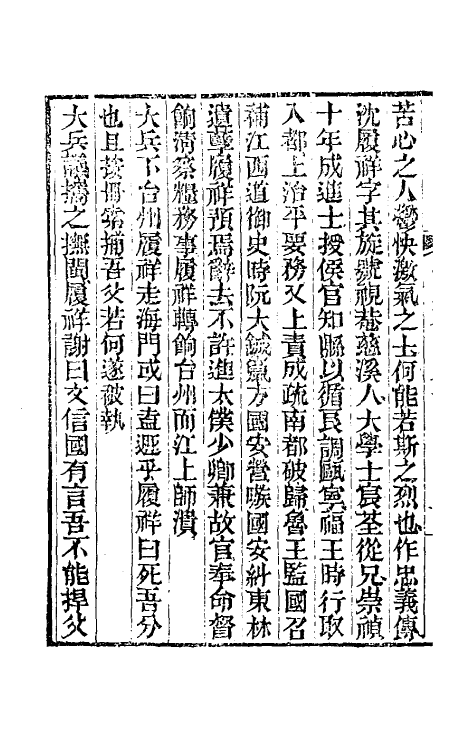 苦心之人鬱怏激氣之士何能若斯之烈也作忠義傳
沈履祥字其旋號視菴慈溪人大學士宸荃從兄崇禎
十年成進士授侯官知縣以循良調甌寧福王時行取
入都上治平要務又上責成疏南都破歸魯王監國召
補江西道御史時阮大鋮竄方國安營嗾國安糾東林
遺孽履祥預焉辭去不許進太僕少卿兼故官奉命督
餉清察糧務事履祥轉餉台州而江上師潰
大兵下台州履祥走海門或曰盍遯乎履祥曰死吾分
也且按冊索捕吾父若何遂被執
大兵之撫閩履祥謝曰文信國有言吾不能捍父